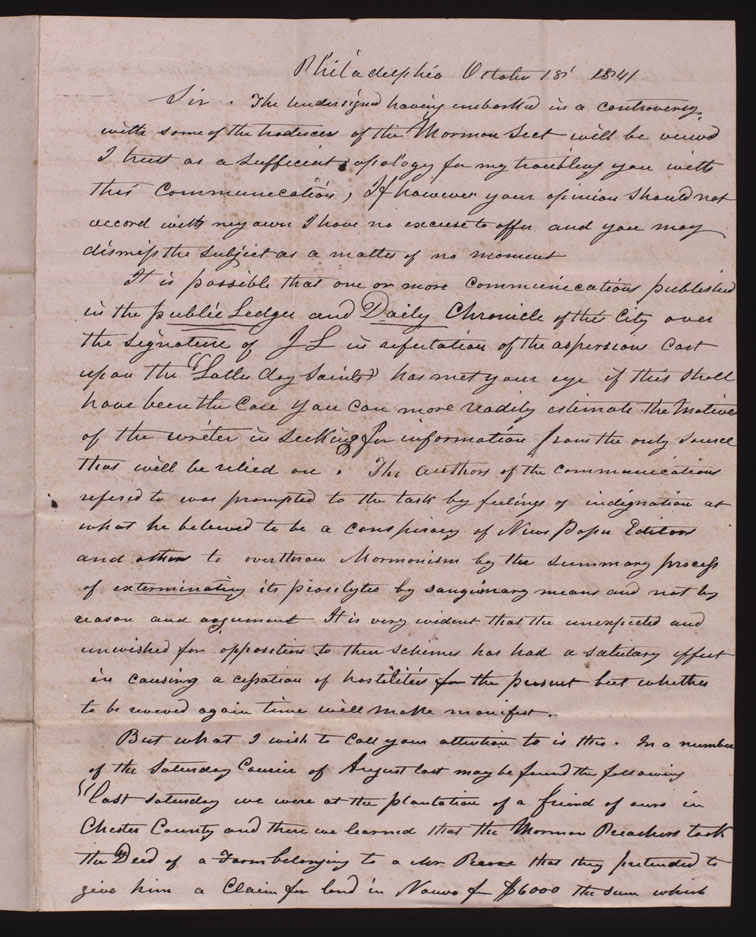 Philadelphia October 18t 1841
Sir. The undersigned having embarked in a controversy
with some of the traducers of the Mormon Sect will be viewed
I trust as a sufficient apology for my troubling you with
this communication, If however your opinion should not
accord with my own I have no excuse to offer and you may
dismiss the subject as a matter of no moment
It is possible that one or more communications published
in the public Ledger and Daily Chronicle of this City over
the signature of J L in refutation of the aspersions cast
upon the "Latter day Saints" has met your eye if this shall
have been the Case you can more readily estimate the motive
of the writer in seeking for information from the only source
that will be relied on. The authors of the communications
refered to was prompted to the task by feelings of indignation at
what he believed to be a conspiracy of News Paper Editors
and others to overthrow Mormonism by the summary process
of exterminating its proselytes by sanguinary means and not by
reason and argument It is very evident that the unexpected and
unwished for opposition to their schemes has had a salutary effect
in causing a cessation of hostilities for the present but whether
to be revived again time will make manifest.
But what I wish to call your attention to is this. In a number
of the Saturday Courier of August last may be found the following
"last Saturday we were at the plantation of a friend of ours in
Chester County and there we learned that the Mormon Preachers took
the Deed of a Farm belonging to a Mr. Peirce that they pretended to
give him a Claim for land in Nauvo for $6000 the sum which